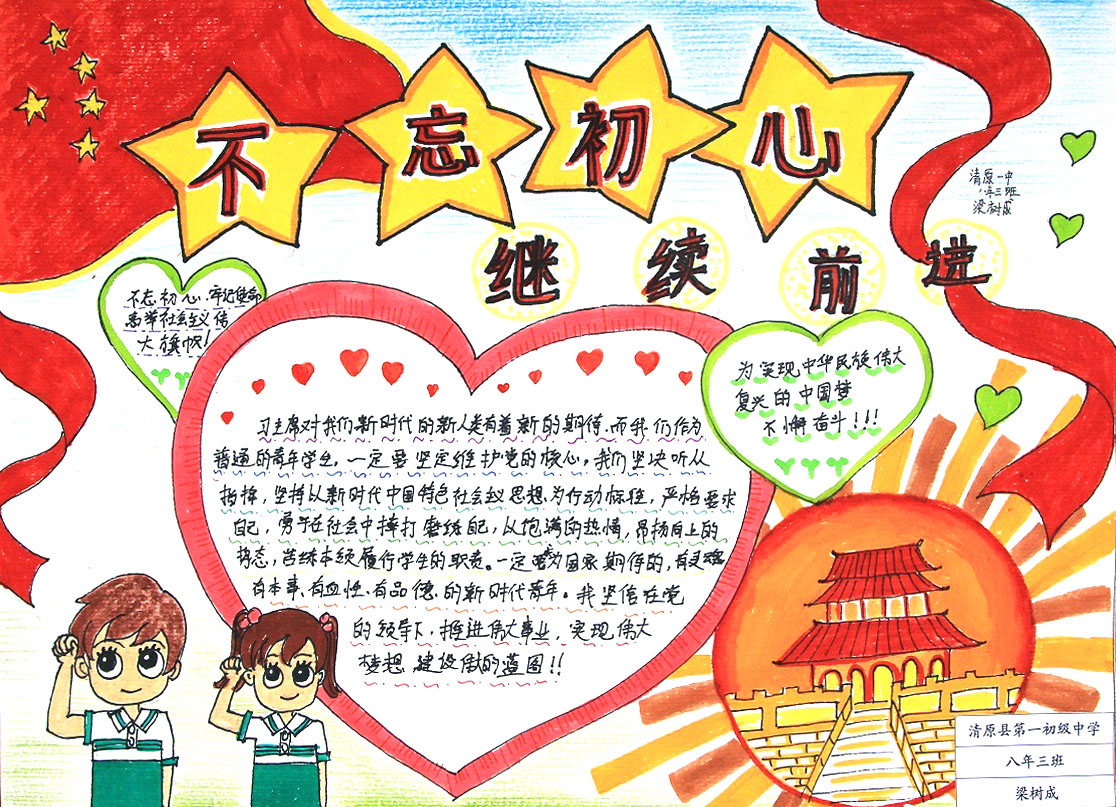 不忘初心
继续前进
清原一中
八年三班
梁树成
不忘初心.牢记使命
高举社会主义伟
大旗帜!
为实现中华民族伟大
复兴的中国梦
不懈奋斗!!!
习主席对我们新时代的新人类有着新的期待.而我们作为
普通的青年学生,一定要坚定维护党的核心。我们坚决听从
指挥,坚持以新时代中国特色社会主义思想为行动标准,严格要求
自己,勇于在社会中摔打磨练自己,以饱满的热情,昂扬向上的
势态,苦练本领履行学生的职责。一定要为国家期待的,有灵魂
有本事、有血性、有品德、的新时代青年。我坚信在党
的领导下.推进伟大事业,实现伟大
梦想 建设伟大的蓝图!!
清原县第一初级中学
八年三班
梁树成